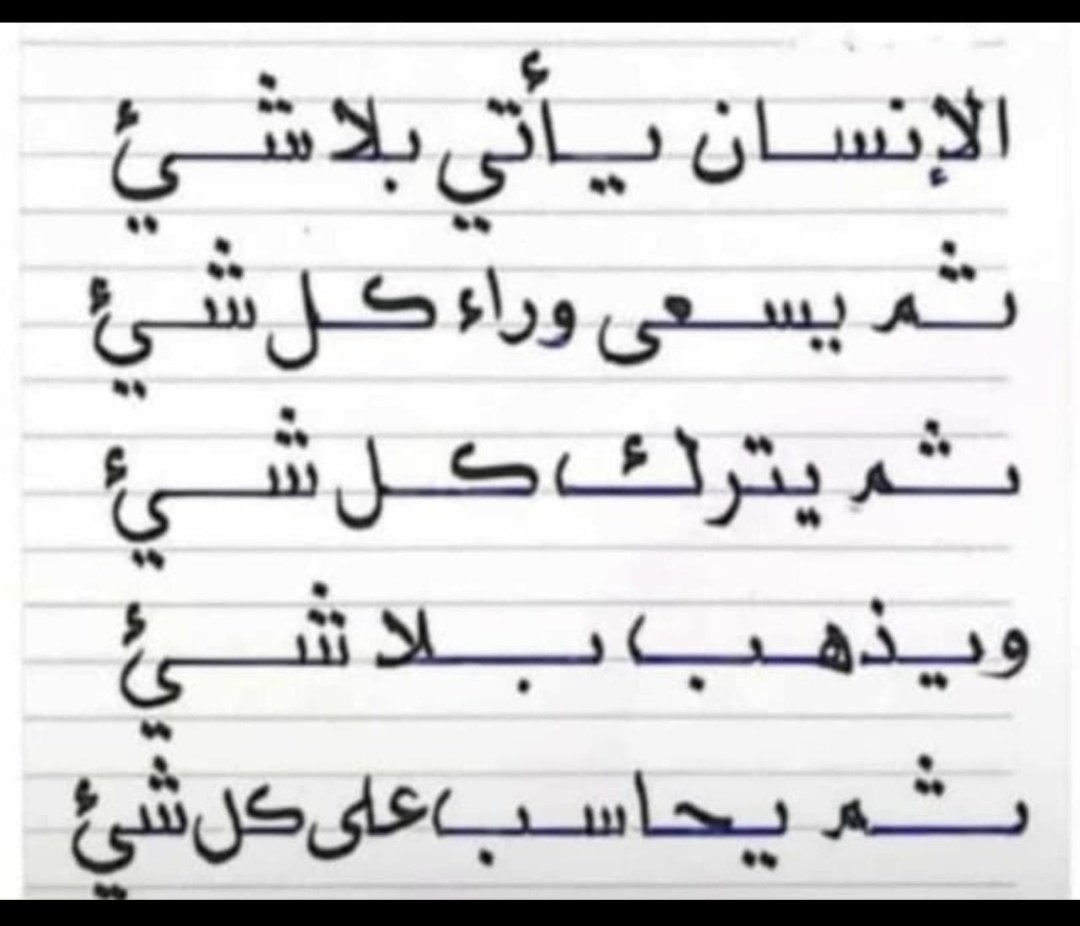 الإنسان يأتي بلا شيئ
ثم يسعى وراء كل شيئ
ثم يترك كل شيئ
ويذهب بلا شيئ
ثم يحاسب على كل شيئ